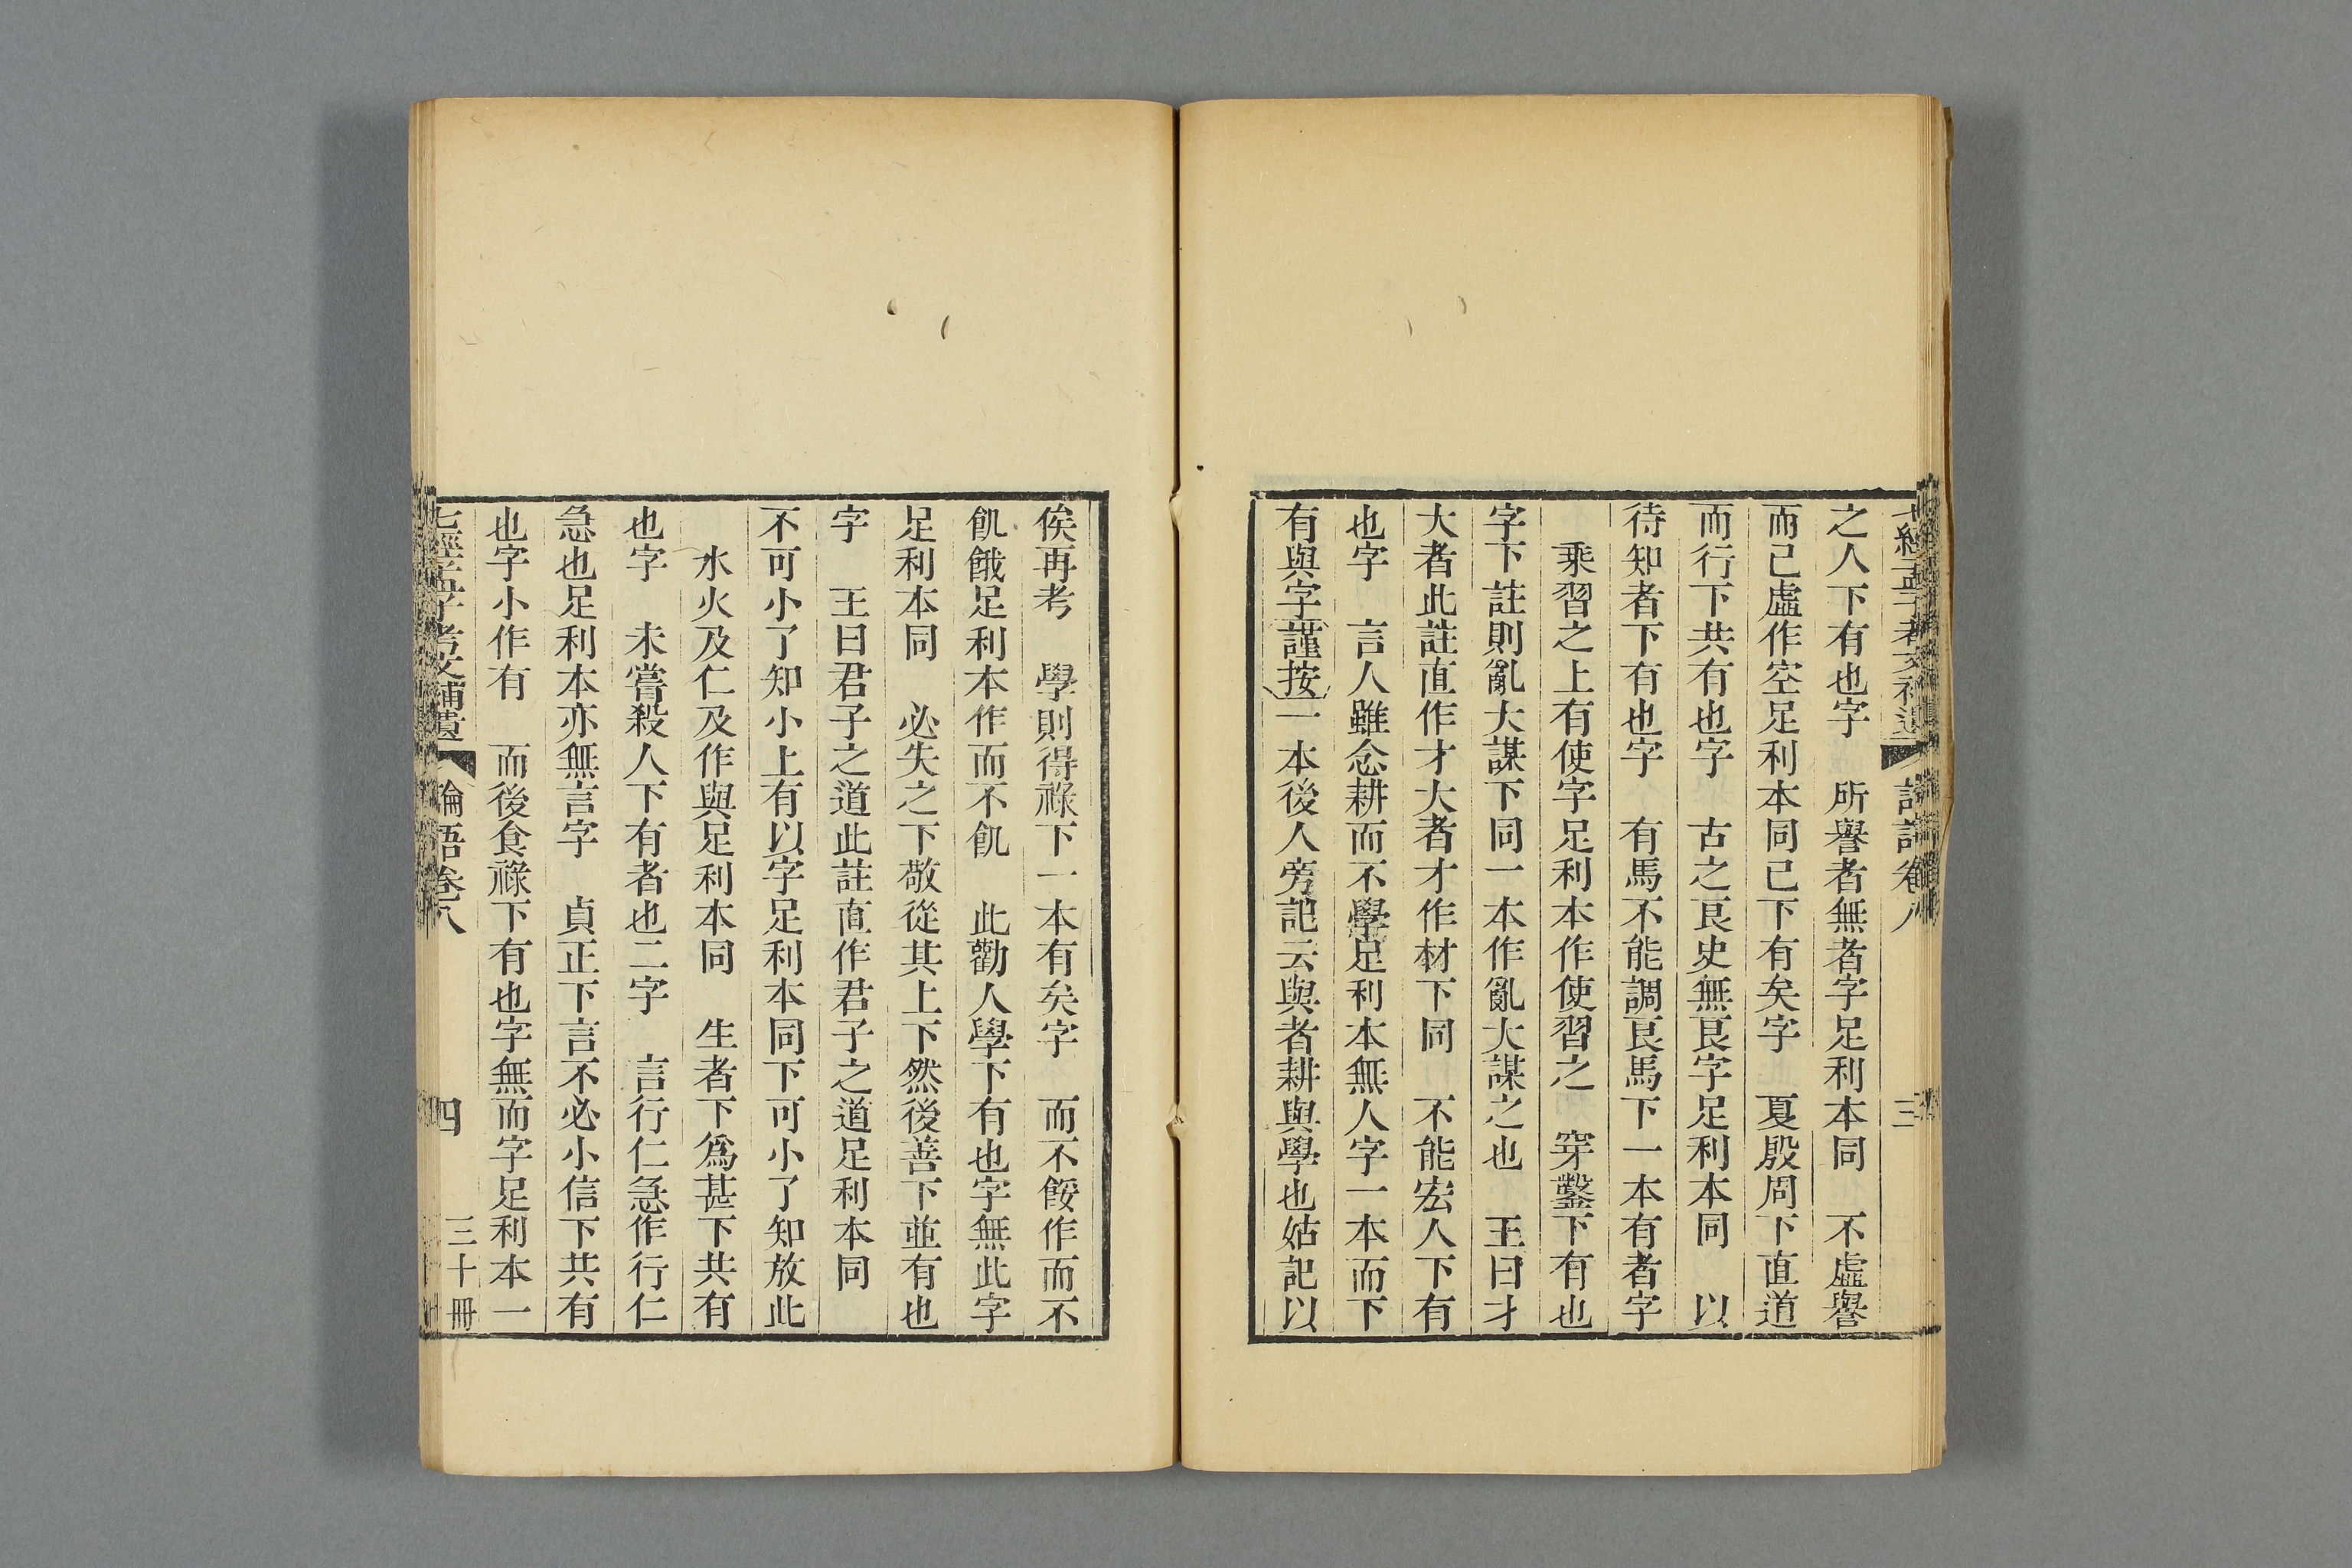 之人下有也字　所譽者無者字足利本同　不虛譽
而已虛作空足利本同已下有矣字　夏殷周下直道
而行下共有也字　古之良史無良字足利本同　以
待知者下有也字　有馬不能調良馬下一本有者字
　乘習之上有使字足利本作使習之　穿鑿下有也
字下註則亂大謀下同一本作亂大謀之也　王曰才
大者此註直作才大者才作材下同　不能宏人下有
也字　言人雖念耕而不學足利本無人字一本而下
有與字謹按一本後人旁記云與者耕與學也姑記以
俟再考　學則得祿下一本有矣字　而不餒作而不
飢餓足利本作而不飢　此勸人學下有也字無此字
足利本同　必失之下敬從其上下然後善下並有也
字　王曰君子之道此註直作君子之道足利本同
不可小了知小上有以字足利本同下可小了知放此
　水火及仁及作與足利本同　生者下為甚下共有
也字　未嘗殺人下有者也二字　言行仁急作行仁
急也足利本亦無言字　貞正下言不必小信下共有
也字小作有　而後食祿下有也字無而字足利本一
七經孟子考文補遺　論語卷八　四　三十冊